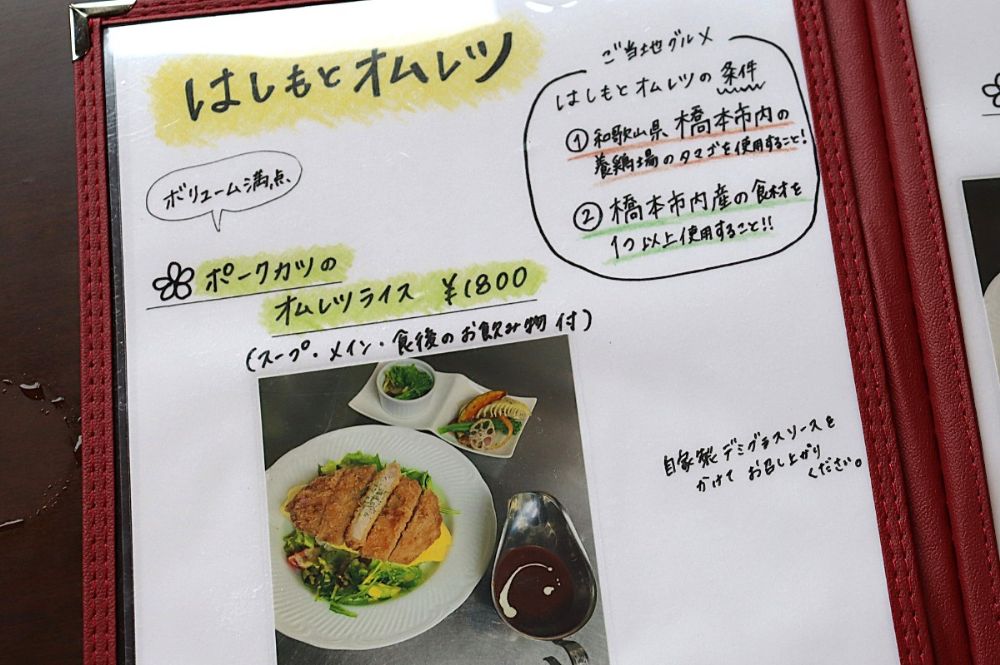 はしもとオムレツ
ご当地グルメ
はしもとオムレツの条件
① 和歌山県 橋本市内の
養鶏場のタマゴを使用すること!
② 橋本市内産の食材を
1つ以上使用すること!!
ボリューム満点、
ポークカツの
オムレツライス ¥1800
(スープ・メイン・食後のお飲み物 付)
自家製デミグラスソースを
かけて お召し上がり
ください。